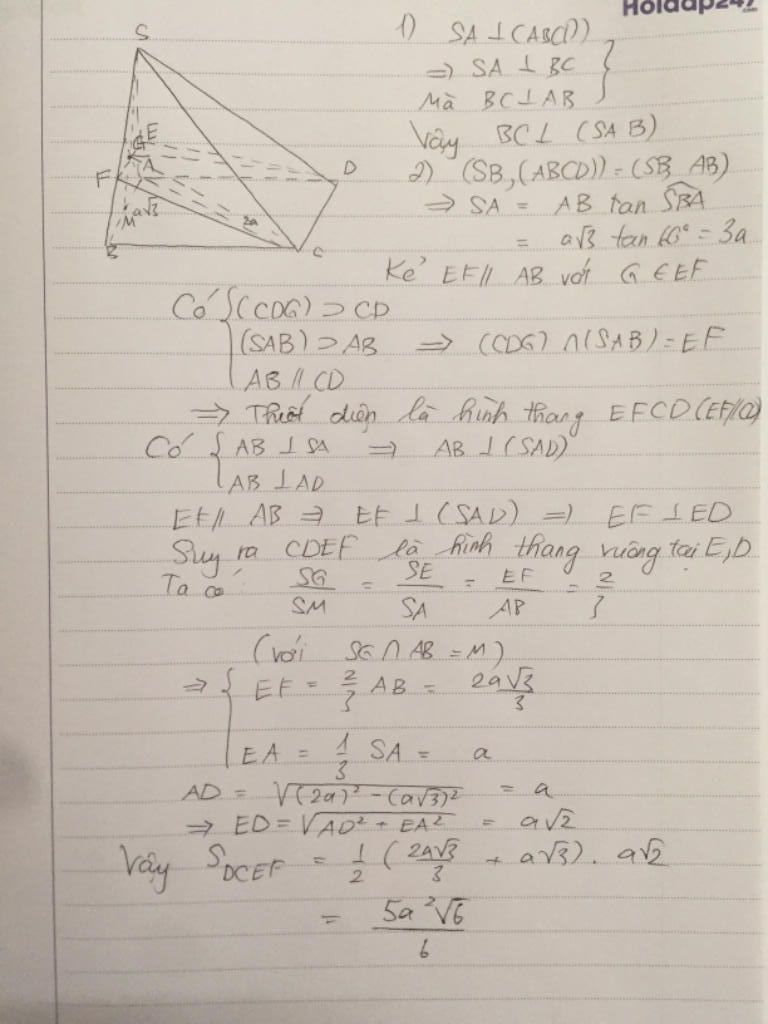 Hoidap247
1) SA ⊥ (ABCD)
⇒ SA ⊥ BC
Mà BC ⊥ AB
Vậy BC ⊥ (SAB)
2) (SB, (ABCD)) = (SB, AB)
⇒ SA = AB tan SBA
= a√3 tan 60° = 3a
Kẻ EF // AB với G ∈ EF
S
E
G
A
F
D
M
a√3
2a
B
C
Có { (CDG) ⊃ CD
(SAB) ⊃ AB ⇒ (CDG) ∩ (SAB) = EF
AB // CD
⇒ Thiết diện là hình thang EFCD (EF//CD)
Có { AB ⊥ SA ⇒ AB ⊥ (SAD)
AB ⊥ AD
EF // AB ⇒ EF ⊥ (SAD) ⇒ EF ⊥ ED
Suy ra CDEF là hình thang vuông tại E, D
Ta có: SG/SM = SE/SA = EF/AB = 2/3
(với SG ∩ AB = M)
⇒ { EF = 2/3 AB = 2a√3/3
EA = 1/3 SA = a
AD = √((2a)² - (a√3)²) = a
⇒ ED = √(AD² + EA²) = a√2
Vậy S_DCEF = 1/2 (2a√3/3 + a√3) . a√2
= 5a²√6/6